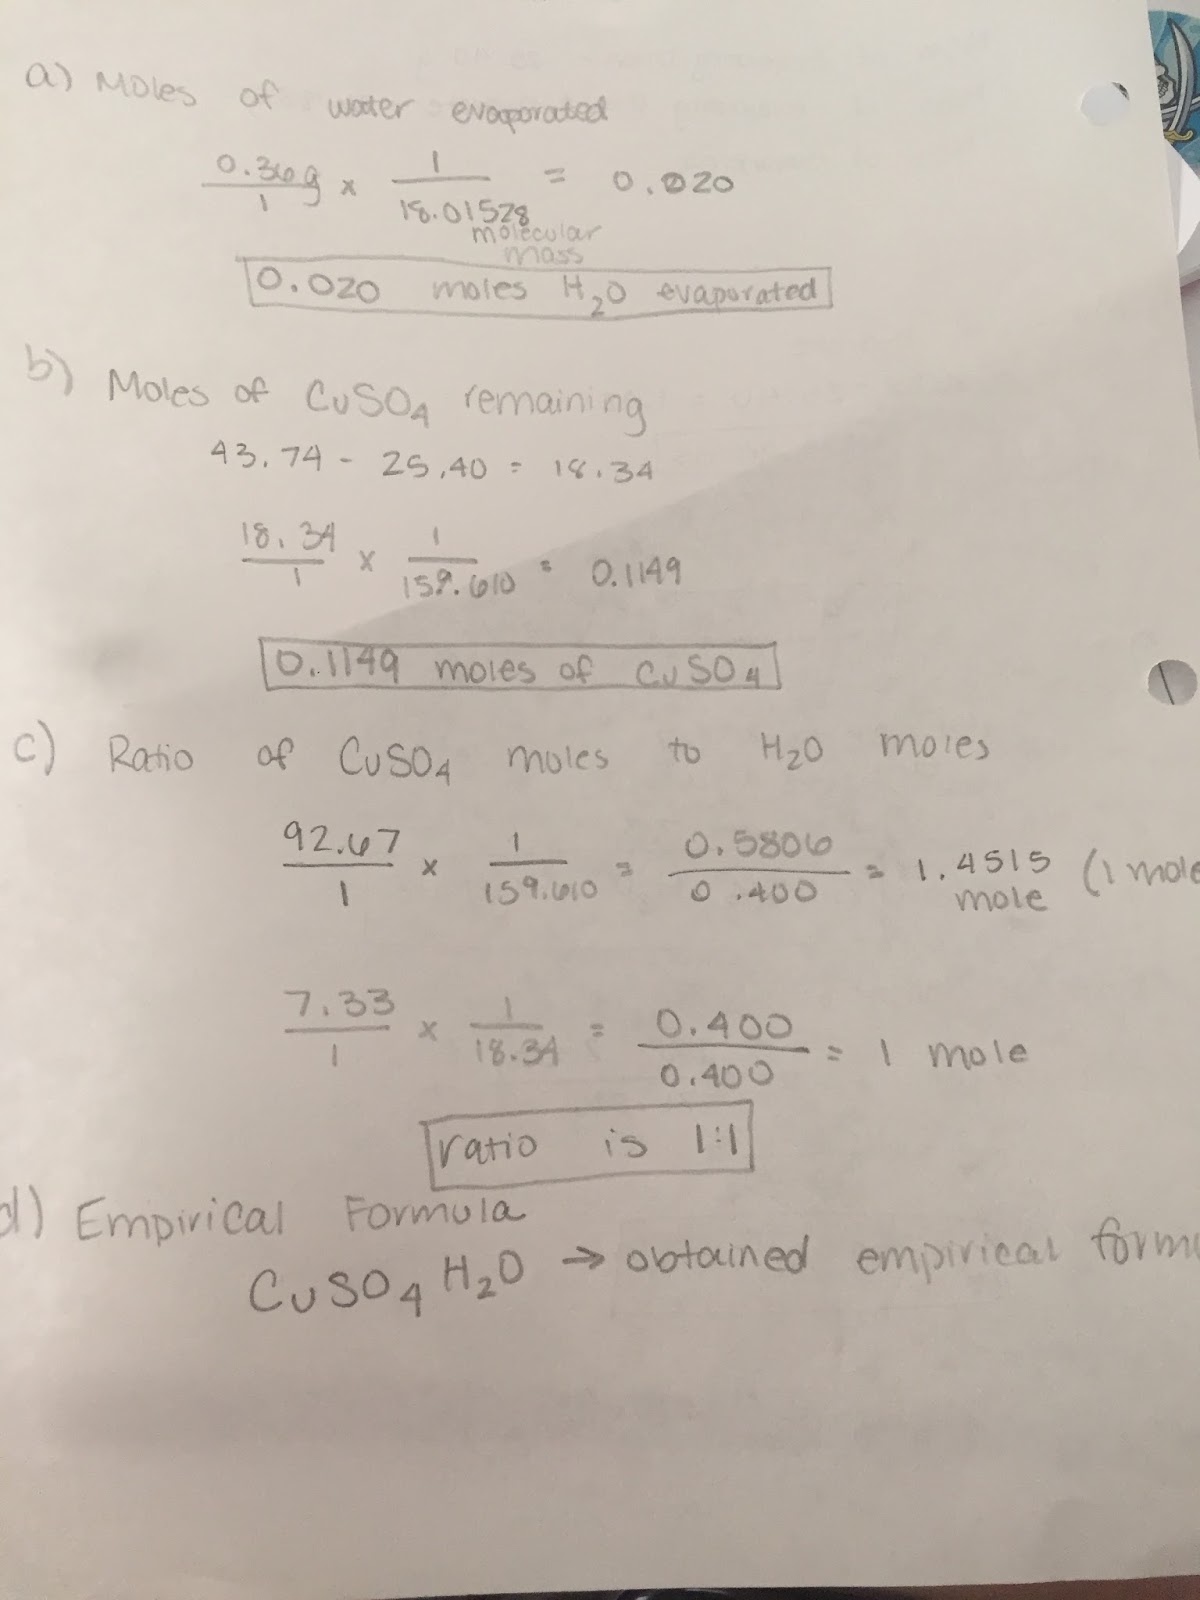 a) Moles of water evaporated
0.36g / 1 x 1 / 18.01528 = 0.020
molecular
mass
0.020 moles H₂O evaporated
b) Moles of CuSO₄ remaining
43.74 - 25.40 = 18.34
18.34 / 1 x 1 / 159.610 = 0.1149
0.1149 moles of CuSO₄
c) Ratio of CuSO₄ moles to H₂O moles
92.67 / 1 x 1 / 159.610 = 0.5806 / 0.400 = 1.4515 (1 mole
mole
7.33 / 1 x 1 / 18.34 = 0.400 / 0.400 = 1 mole
ratio is 1:1
d) Empirical Formula
CuSO₄ H₂O → obtained empirical formu